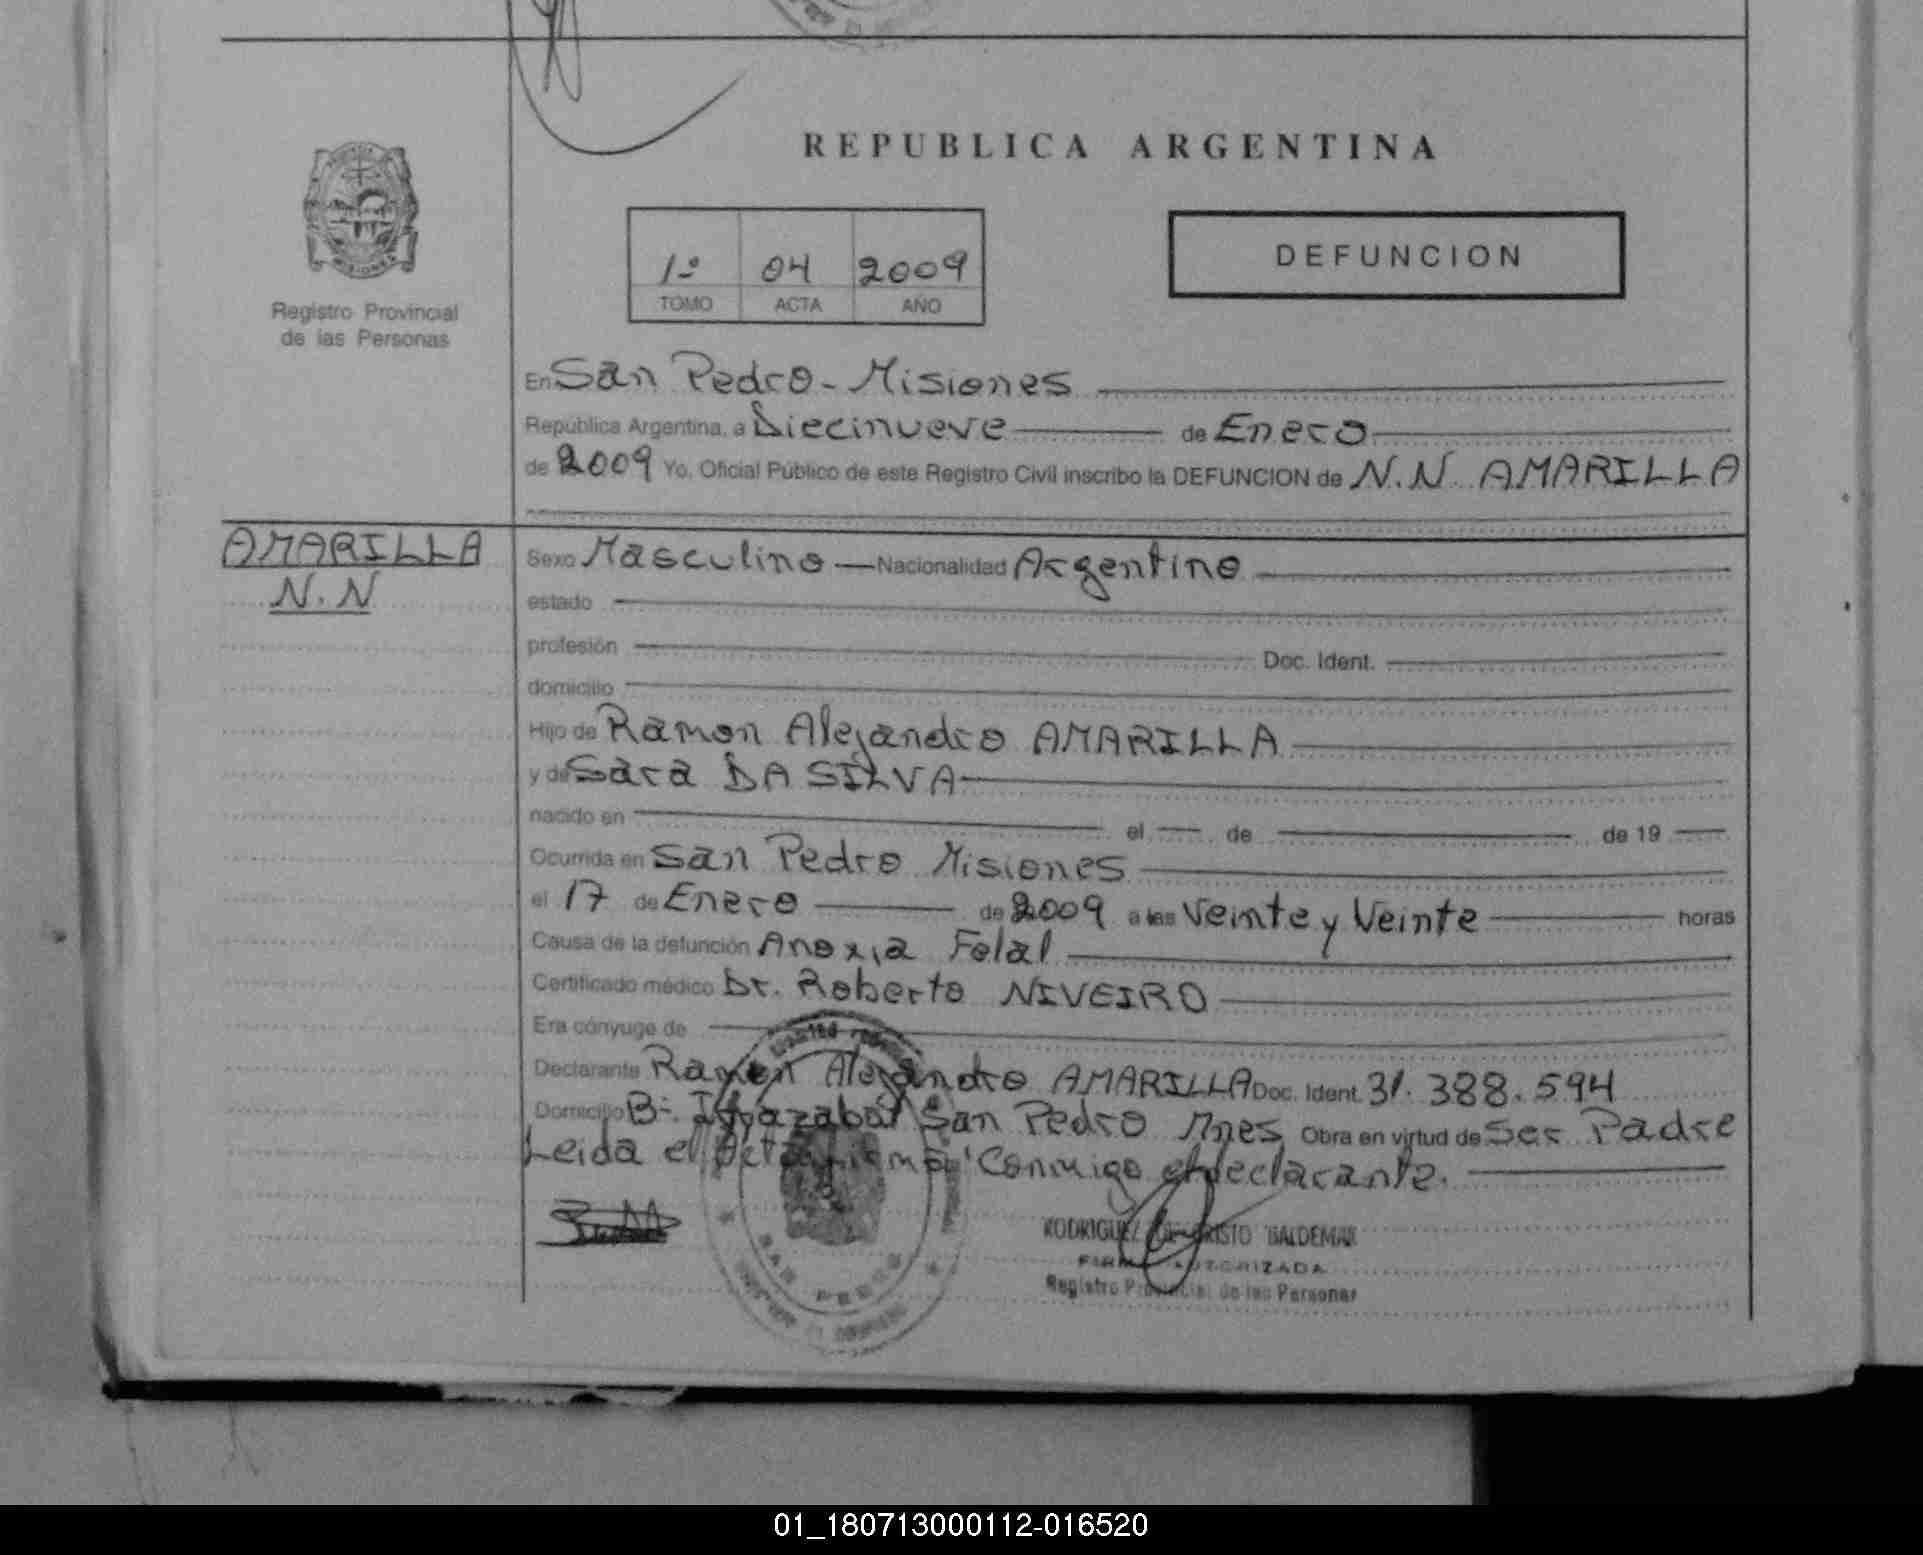 REPUBLICA ARGENTINA
1º 04 2009
TOMO ACTA AÑO
DEFUNCION
MISIONES
Registro Provincial
de las Personas
En San Pedro - Misiones
República Argentina, a Diecinueve de Enero
de 2009 Yo, Oficial Público de este Registro Civil inscribo la DEFUNCION de N.N. AMARILLA
AMARILLA
N.N
Sexo Masculino Nacionalidad Argentino
estado
profesión Doc. Ident.
domicilio
Hijo de Ramon Alejandro AMARILLA
y de Sara DA SILVA
nacido en el de de 19
Ocurrida en San Pedro Misiones
el 17 de Enero de 2009 a las Veinte y Veinte horas
Causa de la defunción Anoxia Fetal
Certificado médico Dr. Roberto NIVEIRO
Era cónyuge de
Declarante Ramon Alejandro AMARILLA Doc. Ident. 31.388.594
Domicilio Bº San Pedro Mnes Obra en virtud de Ser Padre
Leida el Acta Conmigo el declarante.
RODRIGUEZ CRISTO BALDEMAR
FIRMA AUTORIZADA
Registro Provincial de las Personas
SAN PEDRO
01_180713000112-016520